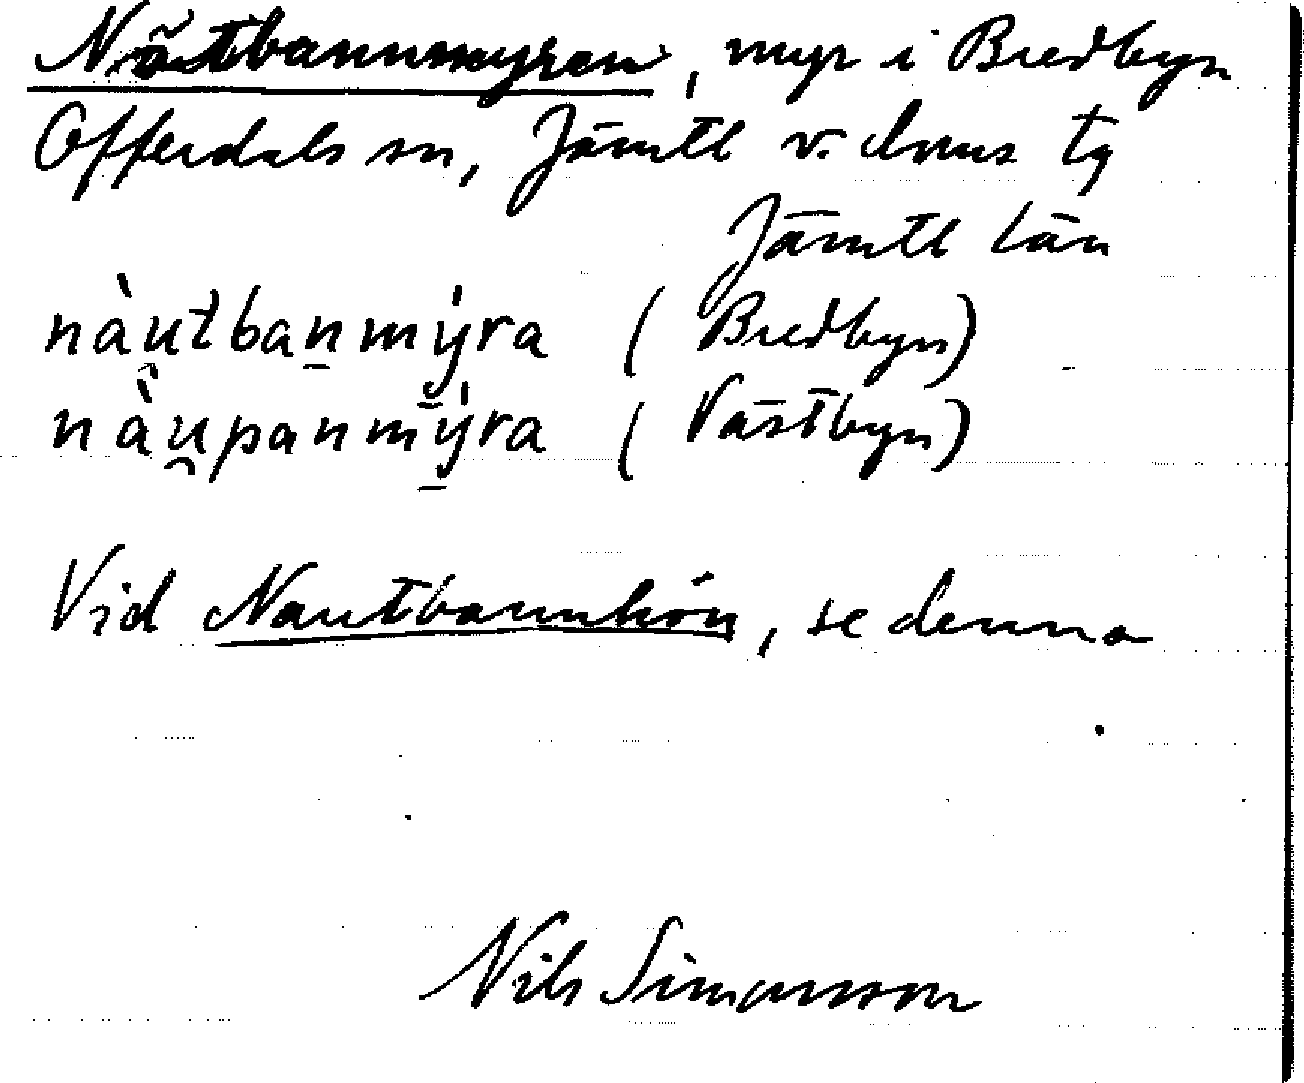 Nötbannmyren, myr i Bredbyn
Offerdals sn, Jämtl v. doms tg
Jämtl län
nàu̯tban̲mýra (Bredbyn)
nàu̯panmýra (Västbyn)
Vid Nautbannhön, se denna
Nils Simonsson